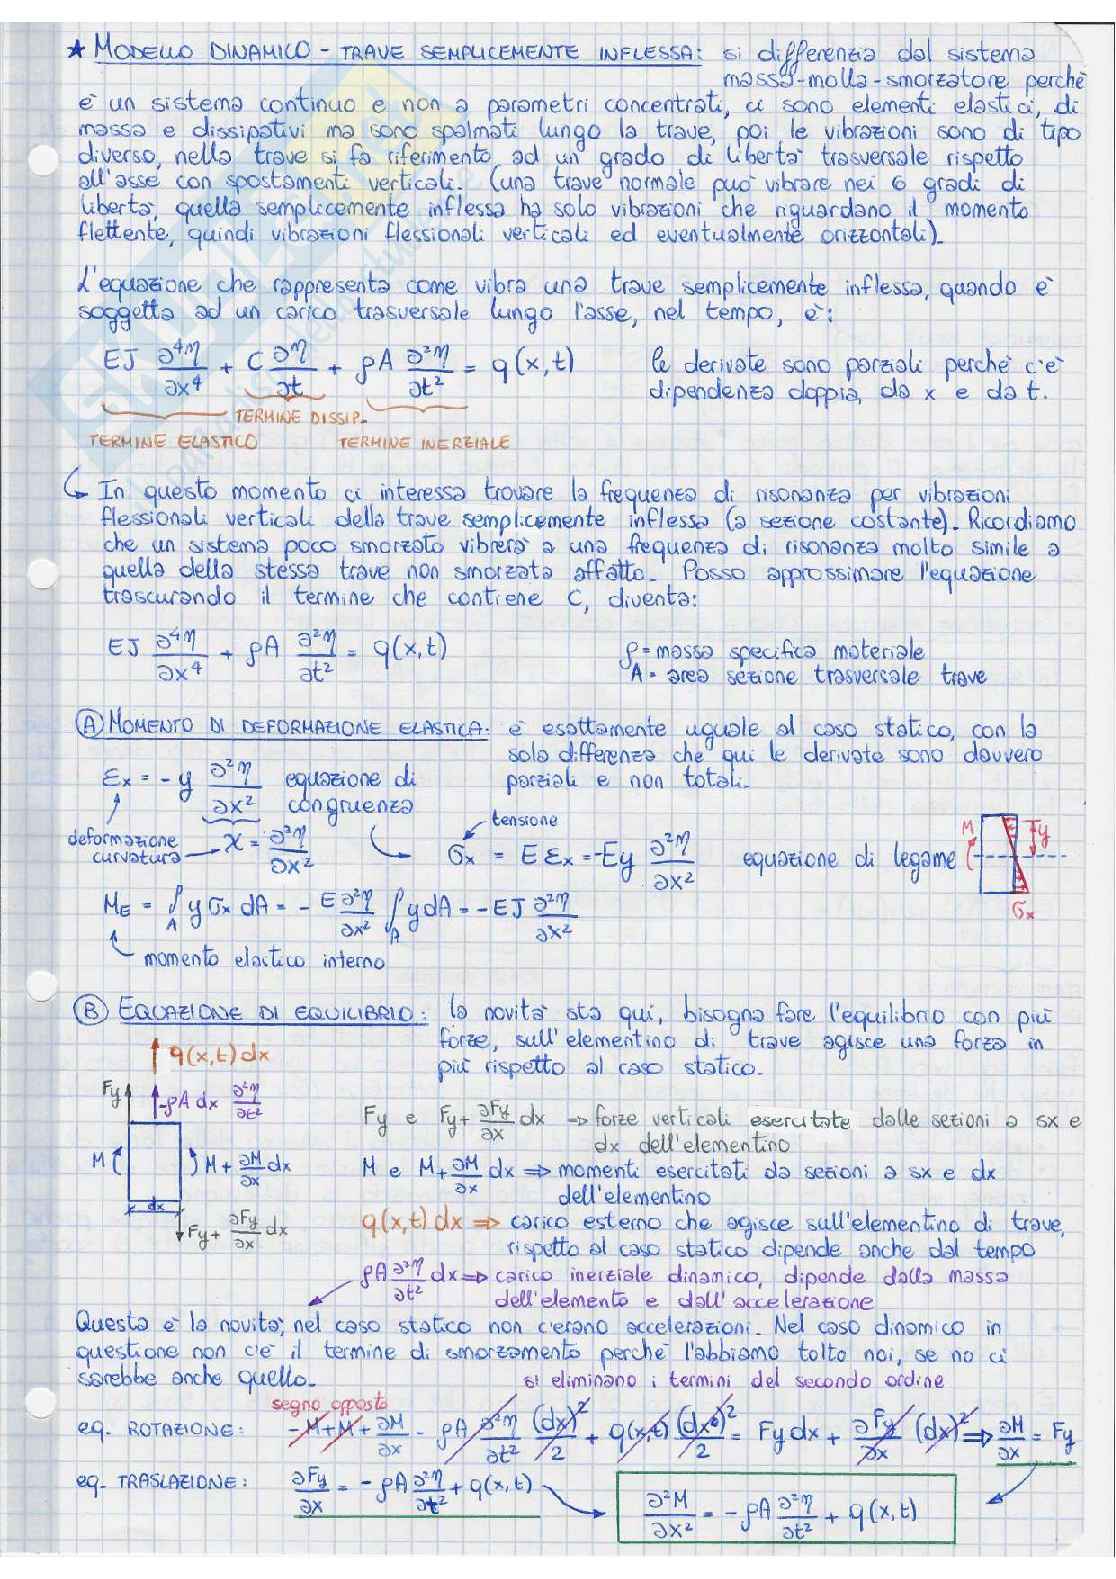 ★ MODELLO DINAMICO - TRAVE SEMPLICEMENTE INFLESSA: si differenzia dal sistema
massa-molla-smorzatore perchè
è un sistema continuo e non a parametri concentrati, ci sono elementi elastici, di
massa e dissipativi ma sono spalmati lungo la trave, poi le vibrazioni sono di tipo
diverso, nella trave si fa riferimento ad un grado di libertà trasversale rispetto
all'asse con spostamenti verticali. (una trave normale può vibrare nei 6 gradi di
libertà, quella semplicemente inflessa ha solo vibrazioni che riguardano il momento
flettente, quindi vibrazioni flessionali verticali ed eventualmente orizzontali).
L'equazione che rappresenta come vibra una trave semplicemente inflessa, quando è
soggetta ad un carico trasversale lungo l'asse, nel tempo, è:
EJ ∂⁴η/∂x⁴ + C ∂η/∂t + ρA ∂²η/∂t² = q(x,t) le derivate sono parziali perchè c'è
dipendenza doppia, da x e da t.
TERMINE DISSIP.
TERMINE ELASTICO TERMINE INERZIALE
↳ In questo momento ci interessa trovare la frequenza di risonanza per vibrazioni
flessionali verticali della trave semplicemente inflessa (a sezione costante). Ricordiamo
che un sistema poco smorzato vibrerà a una frequenza di risonanza molto simile a
quella della stessa trave non smorzata affatto. Posso approssimare l'equazione
trascurando il termine che contiene C, diventa:
EJ ∂⁴η/∂x⁴ + ρA ∂²η/∂t² = q(x,t) ρ = massa specifica materiale
A = area sezione trasversale trave
Ⓐ MOMENTO DI DEFORMAZIONE ELASTICA: è esattamente uguale al caso statico, con la
sola differenza che qui le derivate sono davvero
parziali e non totali.
εx = -y ∂²η/∂x² equazione di
congruenza
deformazione
curvatura → χ = ∂²η/∂x²
tensione
σx = E εx = -Ey ∂²η/∂x² equazione di legame
M y σx
ME = ∫A y σx dA = - E ∂²η/∂x² ∫A y dA = - EJ ∂²η/∂x²
momento elastico interno
Ⓑ EQUAZIONE DI EQUILIBRIO: la novità sta qui, bisogna fare l'equilibrio con più
forze, sull'elementino di trave agisce una forza in
più rispetto al caso statico.
q(x,t) dx
Fy -ρA dx ∂²η/∂t²
M M + ∂M/∂x dx
dx
Fy + ∂Fy/∂x dx
Fy e Fy + ∂Fy/∂x dx → forze verticali esercitate dalle sezioni a sx e
dx dell'elementino
M e M + ∂M/∂x dx ⇒ momenti esercitati da sezioni a sx e dx
dell'elementino
q(x,t) dx ⇒ carico esterno che agisce sull'elementino di trave,
rispetto al caso statico dipende anche dal tempo
ρA ∂²η/∂t² dx ⇒ carico inerziale dinamico, dipende dalla massa
dell'elemento e dall'accelerazione
Questa è la novità, nel caso statico non c'erano accelerazioni. Nel caso dinamico in
questione non c'è il termine di smorzamento perchè l'abbiamo tolto noi, se no ci
sarebbe anche quello.
si eliminano i termini del secondo ordine
segno opposto
eq. ROTAZIONE: -M + M + ∂M/∂x - ρA ∂²η/∂t² (dx)²/2 + q(x,t) (dx)²/2 = Fy dx + ∂Fy/∂x (dx)² ⇒ ∂M/∂x = Fy
eq. TRASLAZIONE: ∂Fy/∂x = - ρA ∂²η/∂t² + q(x,t)
∂²M/∂x² = - ρA ∂²η/∂t² + q(x,t)